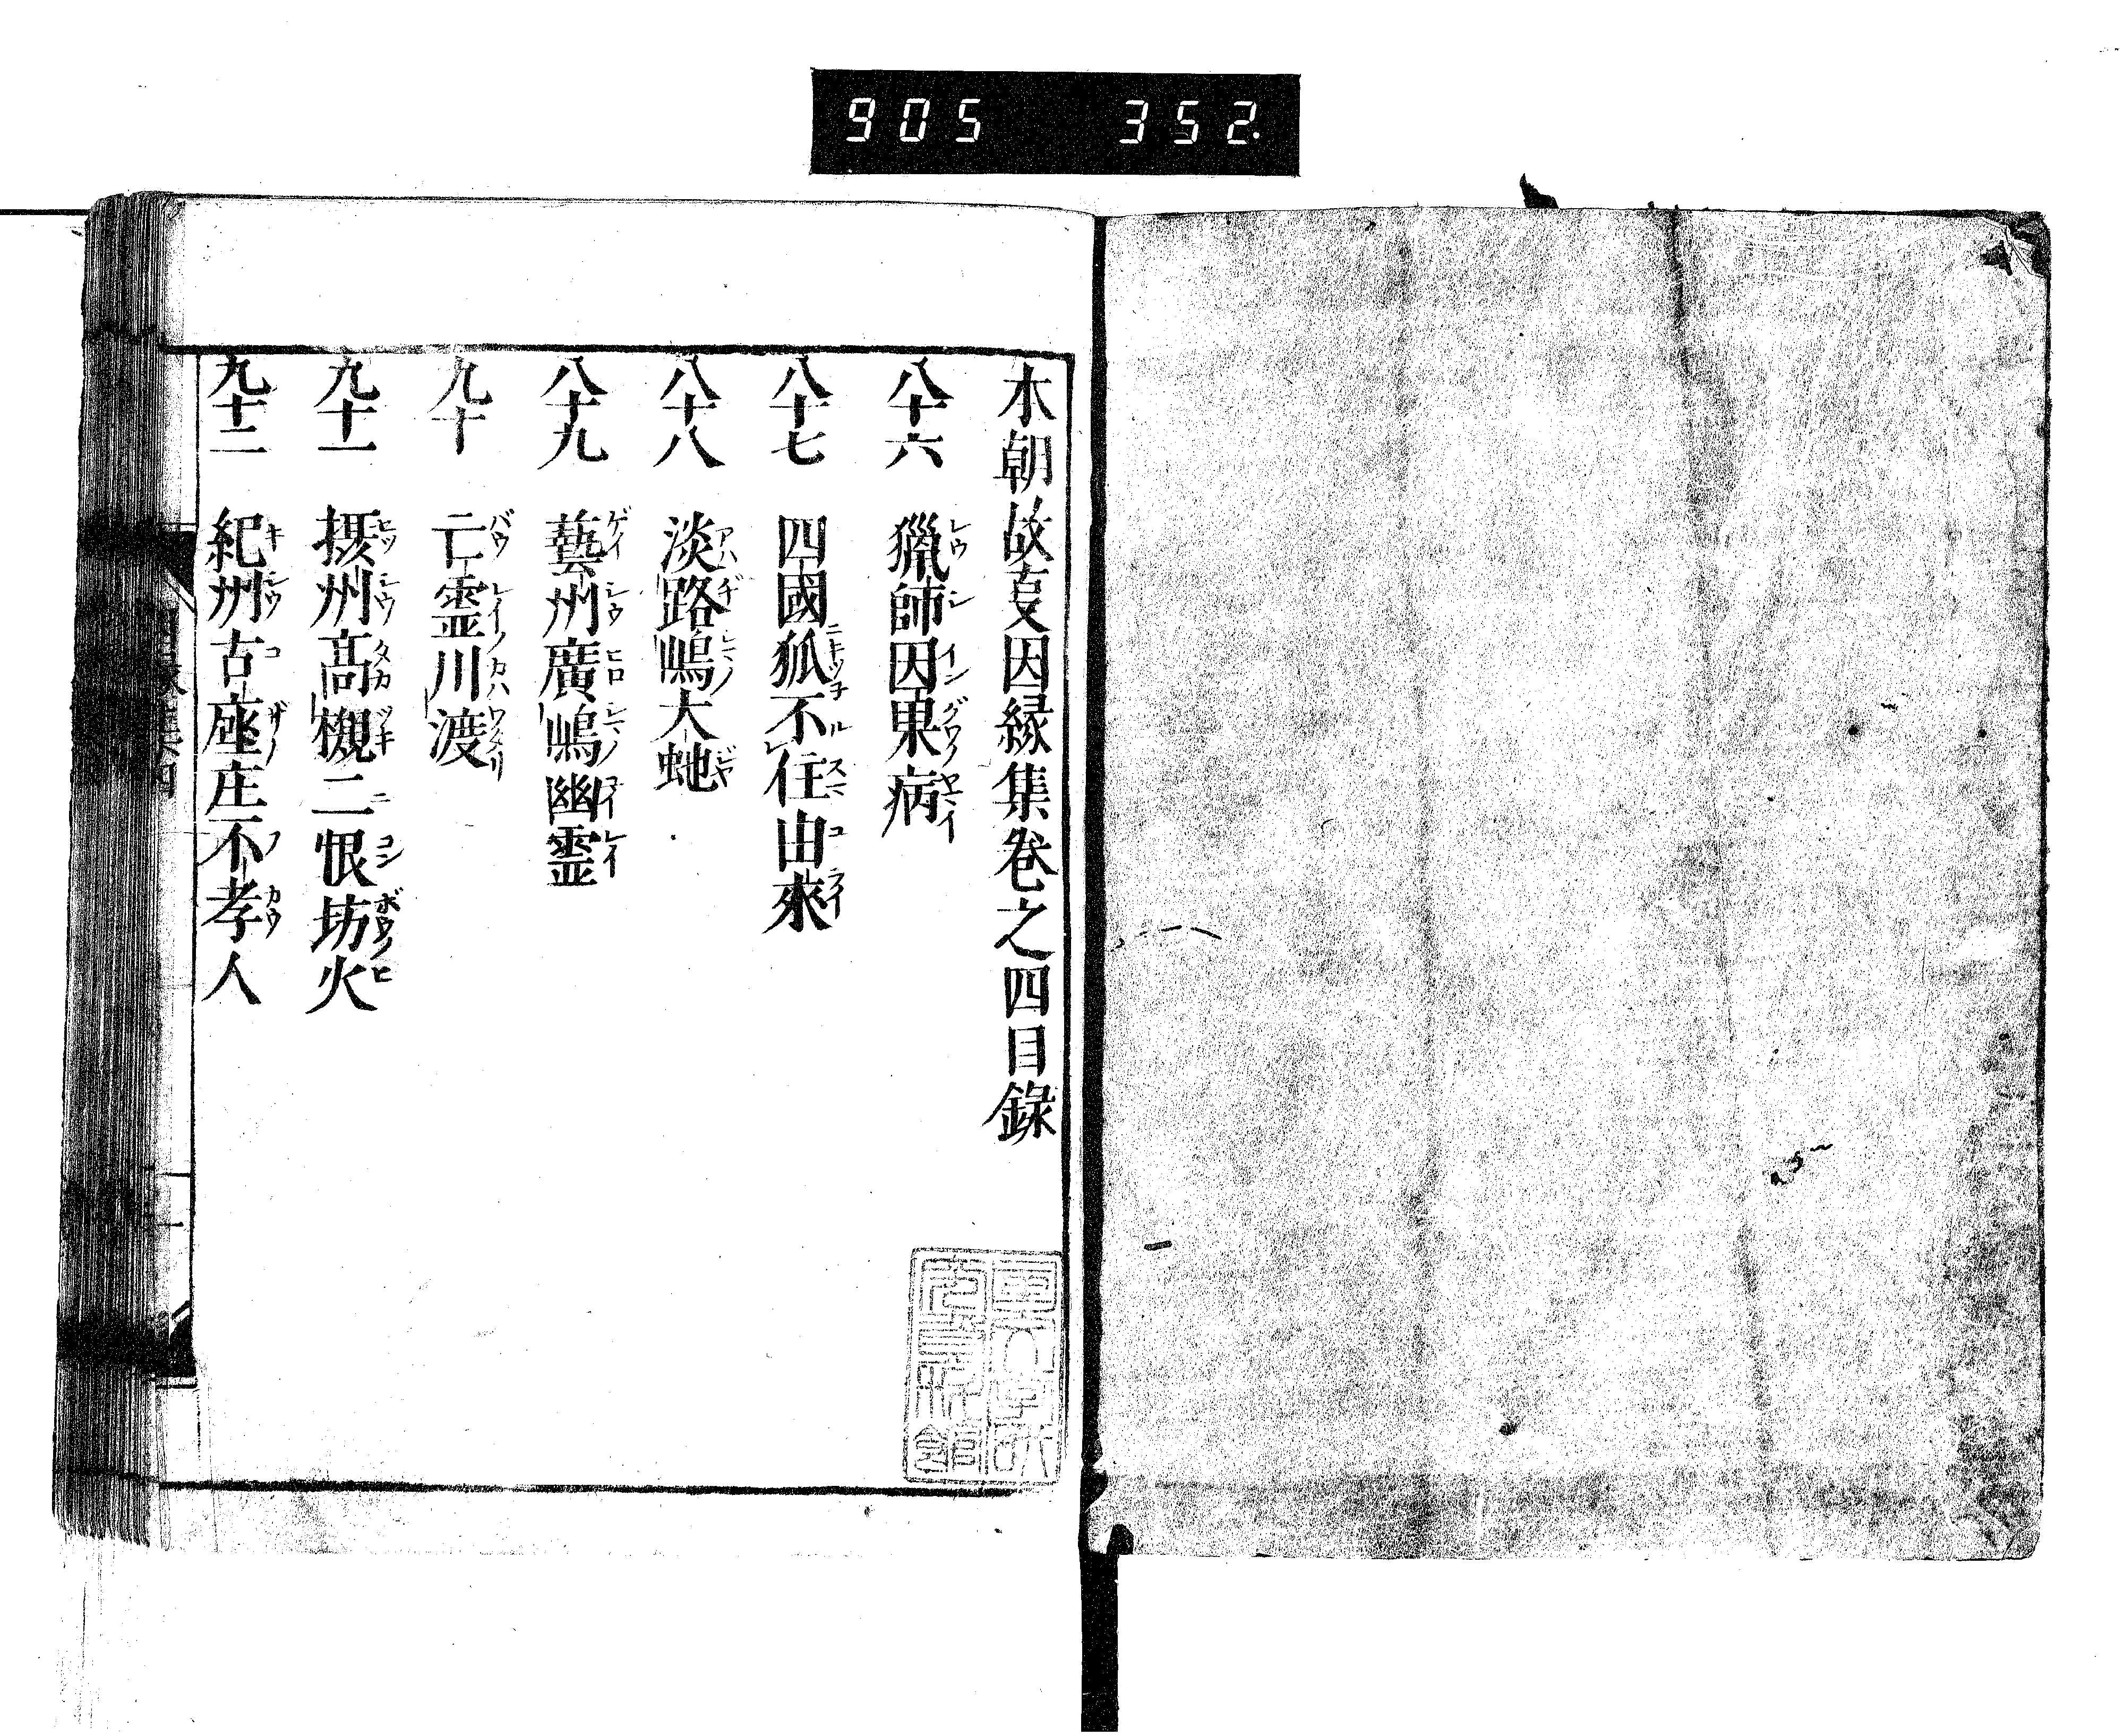 905 352
本朝故叓因縁集卷之四目錄
八十六 獵師因果病
八十七 四國狐不住由來
八十八 淡路嶋大虵
八十九 藝州廣嶋幽霊
九十 亡霊川渡
九十一 摂州髙槻二恨坊火
九十二 紀州古座庄不孝人